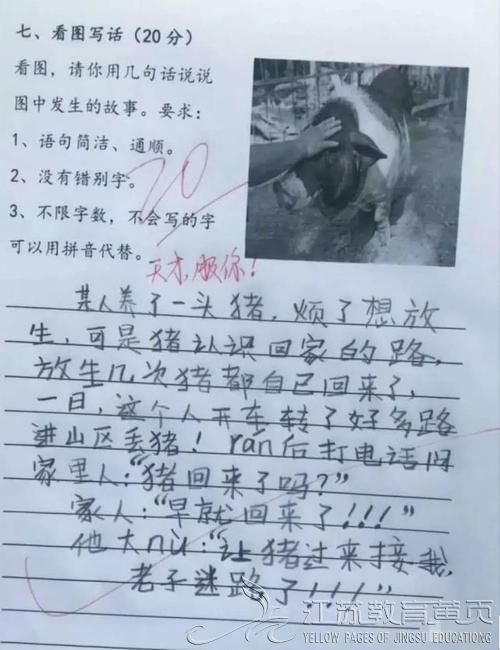 七、看图写话（20分）
看图，请你用几句话说说
图中发生的故事。要求：
1、语句简洁、通顺。
2、没有错别字。
3、不限字数，不会写的字
可以用拼音代替。
20
天才，服你！
某人养了一头猪，烦了想放
生，可是猪认识回家的路，
放生几次猪都自己回来了，
一日，这个人开车转了好多路
进山区丢猪！rán后打电话问
家里人：“猪回来了吗？”
家人：“早就回来了！！！”
他大nù：“让猪过来接我，
老子迷路了！！！”
江苏教育黄页
YELLOW PAGES OF JINGSU EDUCATIONG